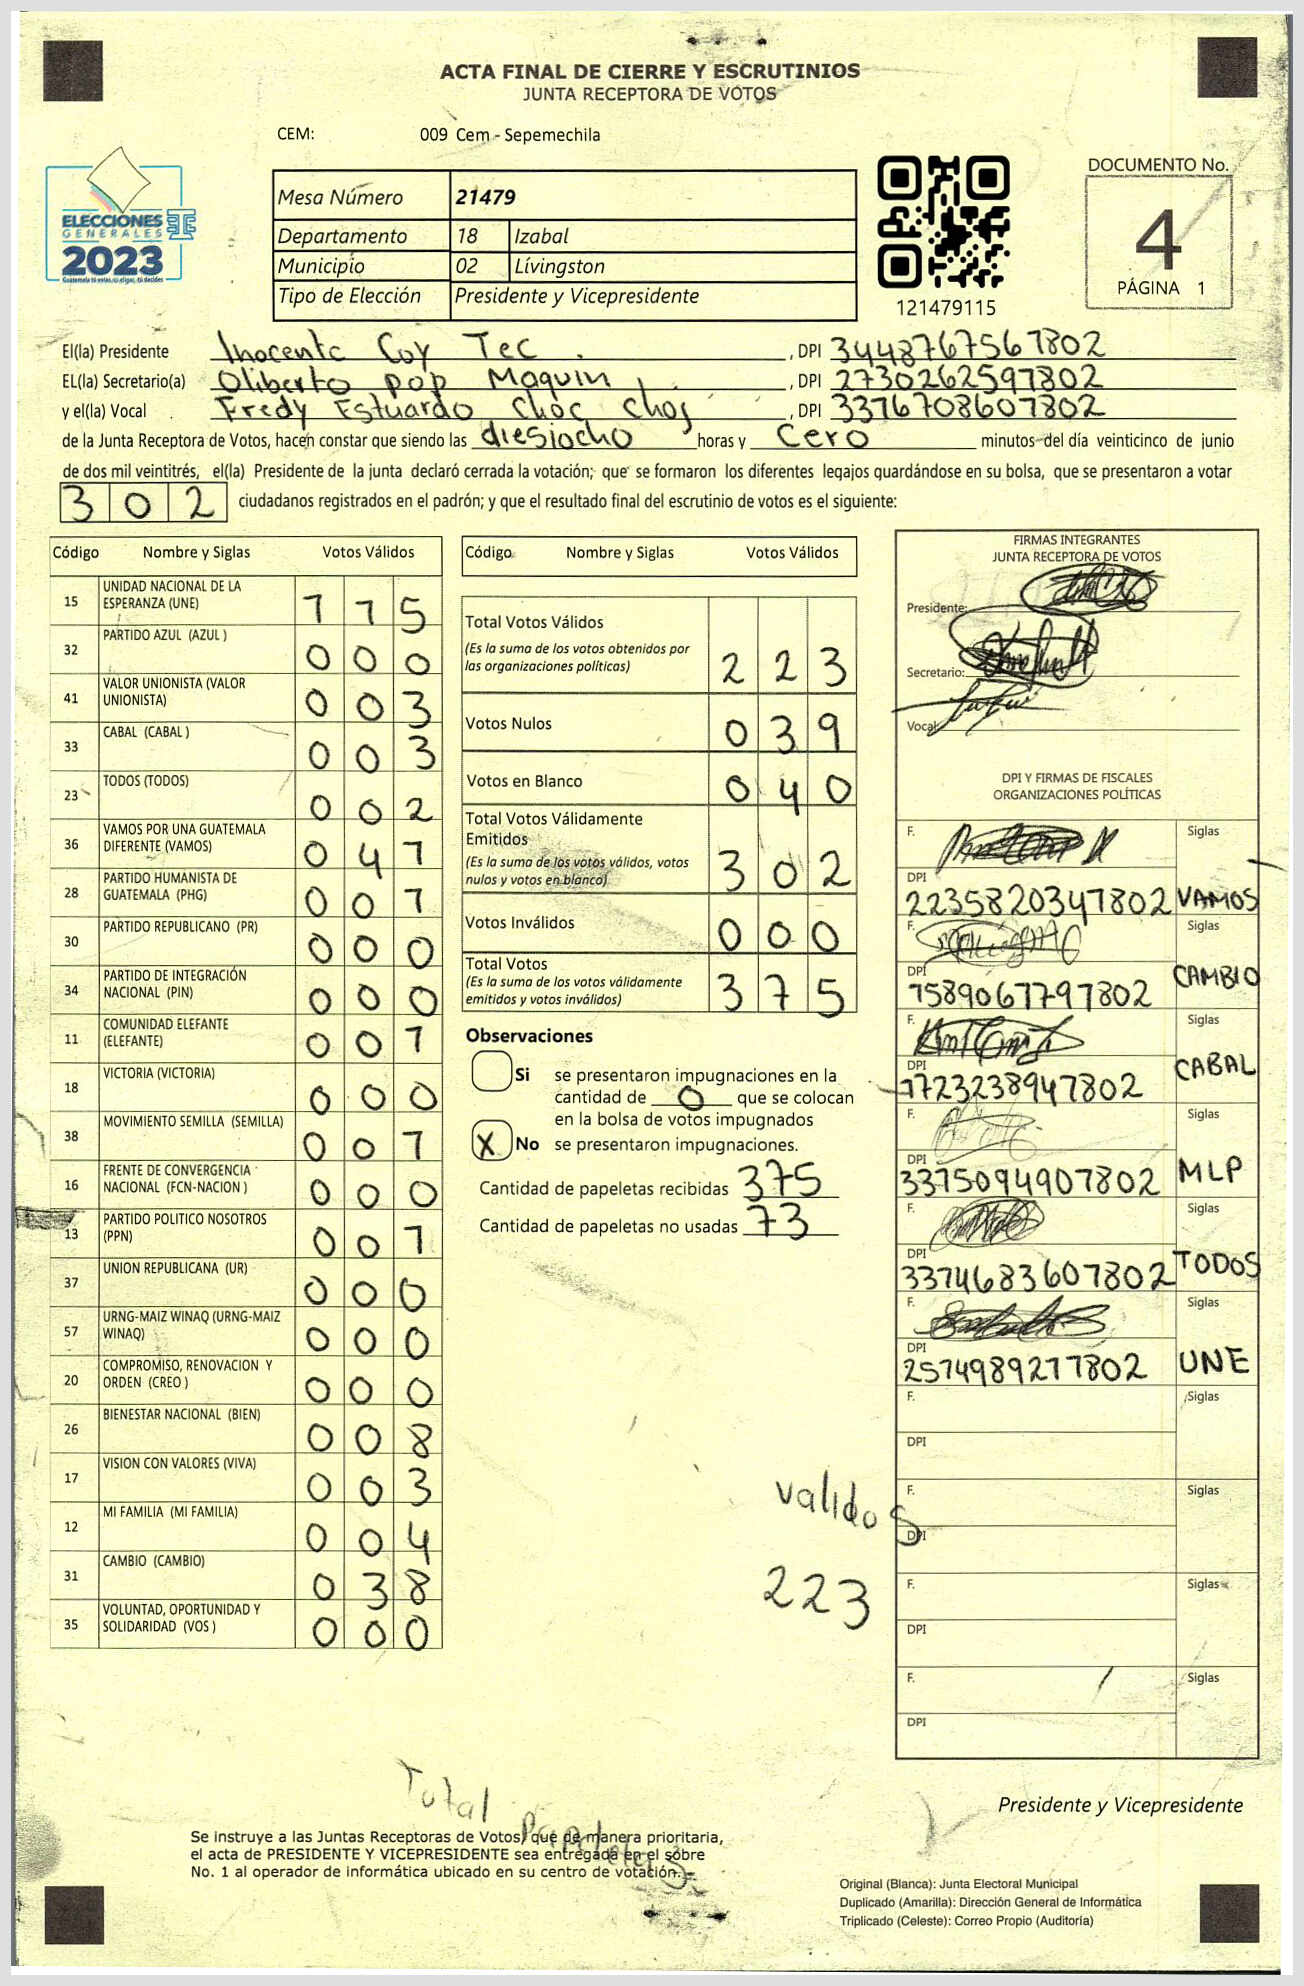 ACTA FINAL DE CIERRE Y ESCRUTINIOS
JUNTA RECEPTORA DE VOTOS
CEM: 009 Cem - Sepemechila
ELECCIONES
GENERALES
2023
Guatemala tú estás, tú eliges, tú decides
Mesa Número 21479
Departamento 18 Izabal
Municipio 02 Lívingston
Tipo de Elección Presidente y Vicepresidente
121479115
DOCUMENTO No.
4
PÁGINA 1
El(la) Presidente Inocente Coy Tec , DPI 3448767561802
EL(la) Secretario(a) Oliberto pop Maquin , DPI 2730262591802
y el(la) Vocal Fredy Estuardo Choc Choj , DPI 3376708601802
de la Junta Receptora de Votos, hacen constar que siendo las diesiocho horas y Cero minutos del día veinticinco de junio
de dos mil veintitrés, el(la) Presidente de la junta declaró cerrada la votación; que se formaron los diferentes legajos guardándose en su bolsa, que se presentaron a votar
302 ciudadanos registrados en el padrón; y que el resultado final del escrutinio de votos es el siguiente:
Código Nombre y Siglas Votos Válidos
15 UNIDAD NACIONAL DE LA
ESPERANZA (UNE) 115
32 PARTIDO AZUL (AZUL ) 000
41 VALOR UNIONISTA (VALOR
UNIONISTA) 003
33 CABAL (CABAL ) 003
23 TODOS (TODOS) 002
36 VAMOS POR UNA GUATEMALA
DIFERENTE (VAMOS) 041
28 PARTIDO HUMANISTA DE
GUATEMALA (PHG) 001
30 PARTIDO REPUBLICANO (PR) 000
34 PARTIDO DE INTEGRACIÓN
NACIONAL (PIN) 000
11 COMUNIDAD ELEFANTE
(ELEFANTE) 001
18 VICTORIA (VICTORIA) 000
38 MOVIMIENTO SEMILLA (SEMILLA) 001
16 FRENTE DE CONVERGENCIA
NACIONAL (FCN-NACION ) 000
13 PARTIDO POLITICO NOSOTROS
(PPN) 001
37 UNION REPUBLICANA (UR) 000
57 URNG-MAIZ WINAQ (URNG-MAIZ
WINAQ) 000
20 COMPROMISO, RENOVACION Y
ORDEN (CREO ) 000
26 BIENESTAR NACIONAL (BIEN) 008
17 VISION CON VALORES (VIVA) 003
12 MI FAMILIA (MI FAMILIA) 004
31 CAMBIO (CAMBIO) 038
35 VOLUNTAD, OPORTUNIDAD Y
SOLIDARIDAD (VOS ) 000
Código Nombre y Siglas Votos Válidos
Total Votos Válidos
(Es la suma de los votos obtenidos por
las organizaciones políticas) 223
Votos Nulos 039
Votos en Blanco 040
Total Votos Válidamente
Emitidos
(Es la suma de los votos válidos, votos
nulos y votos en blanco) 302
Votos Inválidos 000
Total Votos
(Es la suma de los votos válidamente
emitidos y votos inválidos) 375
Observaciones
Si se presentaron impugnaciones en la
cantidad de 0 que se colocan
en la bolsa de votos impugnados
X No se presentaron impugnaciones.
Cantidad de papeletas recibidas 375
Cantidad de papeletas no usadas 73
validos
223
FIRMAS INTEGRANTES
JUNTA RECEPTORA DE VOTOS
Presidente:
Secretario:
Vocal
DPI Y FIRMAS DE FISCALES
ORGANIZACIONES POLÍTICAS
F. Siglas
DPI 2235820341802 VAMOS
F. Siglas
DPI 1589067791802 CAMBIO
F. Siglas
DPI 1723238941802 CABAL
F. Siglas
DPI 3375094901802 MLP
F. Siglas
DPI 3374683601802 TODOS
F. Siglas
DPI 2574989211802 UNE
F. Siglas
DPI
F. Siglas
DPI
F. Siglas
DPI
F. Siglas
DPI
Presidente y Vicepresidente
Total
Papeletas
Se instruye a las Juntas Receptoras de Votos, que de manera prioritaria,
el acta de PRESIDENTE Y VICEPRESIDENTE sea entregada en el sobre
No. 1 al operador de informática ubicado en su centro de votación.
Original (Blanca): Junta Electoral Municipal
Duplicado (Amarilla): Dirección General de Informática
Triplicado (Celeste): Correo Propio (Auditoría)